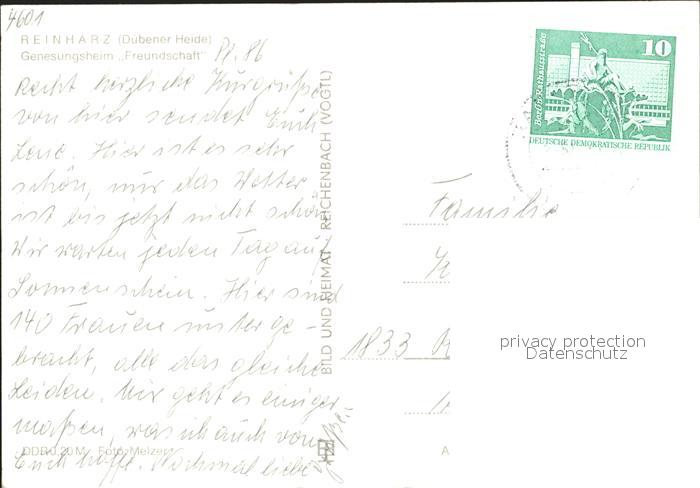 4601
REINHARZ (Dübener Heide)
Genesungsheim „Freundschaft"
Pf. 86
Recht herzliche Kurgrüße
von hier sendet Euch
Lene. Hier ist es sehr
schön, nur das Wetter
ist bis jetzt nicht schön
Wir warten jeden Tag auf
Sonnenschein. Hier sind
140 Frauen unterge-
bracht, alle das gleiche
Leiden. Mir geht es einiger
maßen, was ich auch von
Euch hoffe. Nochmal liebe
Grüße.
DDR 0,20 M Foto: Melzer
BILD UND HEIMAT REICHENBACH (VOGTL)
Berlin, Rathausstraße
10
DEUTSCHE DEMOKRATISCHE REPUBLIK
Familie
K
1833 R
privacy protection
Datenschutz
A